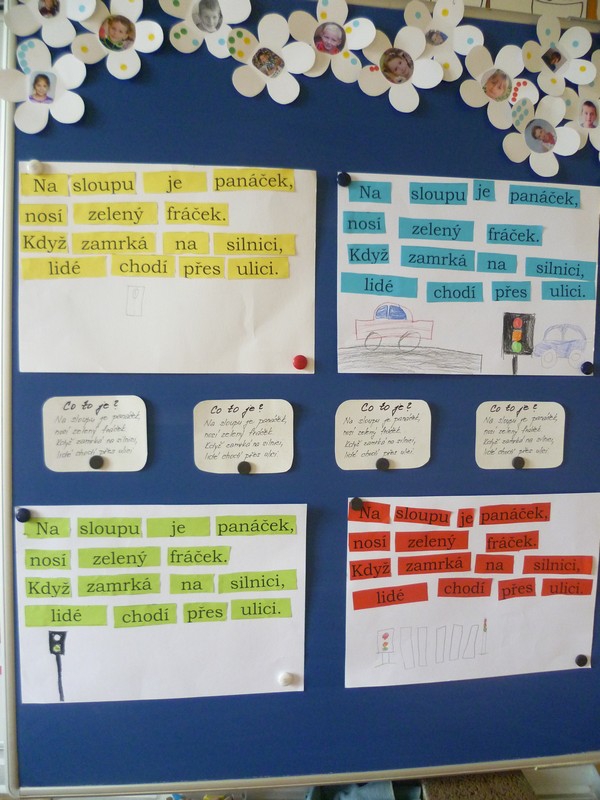 Na sloupu je panáček,
nosí zelený fráček.
Když zamrká na silnici,
lidé chodí přes ulici.
Na sloupu je panáček,
nosí zelený fráček.
Když zamrká na silnici,
lidé chodí přes ulici.
Co to je?
Na sloupu je panáček,
nosí zelený fráček.
Když zamrká na silnici,
lidé chodí přes ulici.
Co to je?
Na sloupu je panáček,
nosí zelený fráček.
Když zamrká na silnici,
lidé chodí přes ulici.
Co to je?
Na sloupu je panáček,
nosí zelený fráček.
Když zamrká na silnici,
lidé chodí přes ulici.
Co to je?
Na sloupu je panáček,
nosí zelený fráček.
Když zamrká na silnici,
lidé chodí přes ulici.
Na sloupu je panáček,
nosí zelený fráček.
Když zamrká na silnici,
lidé chodí přes ulici.
Na sloupu je panáček,
nosí zelený fráček.
Když zamrká na silnici,
lidé chodí přes ulici.